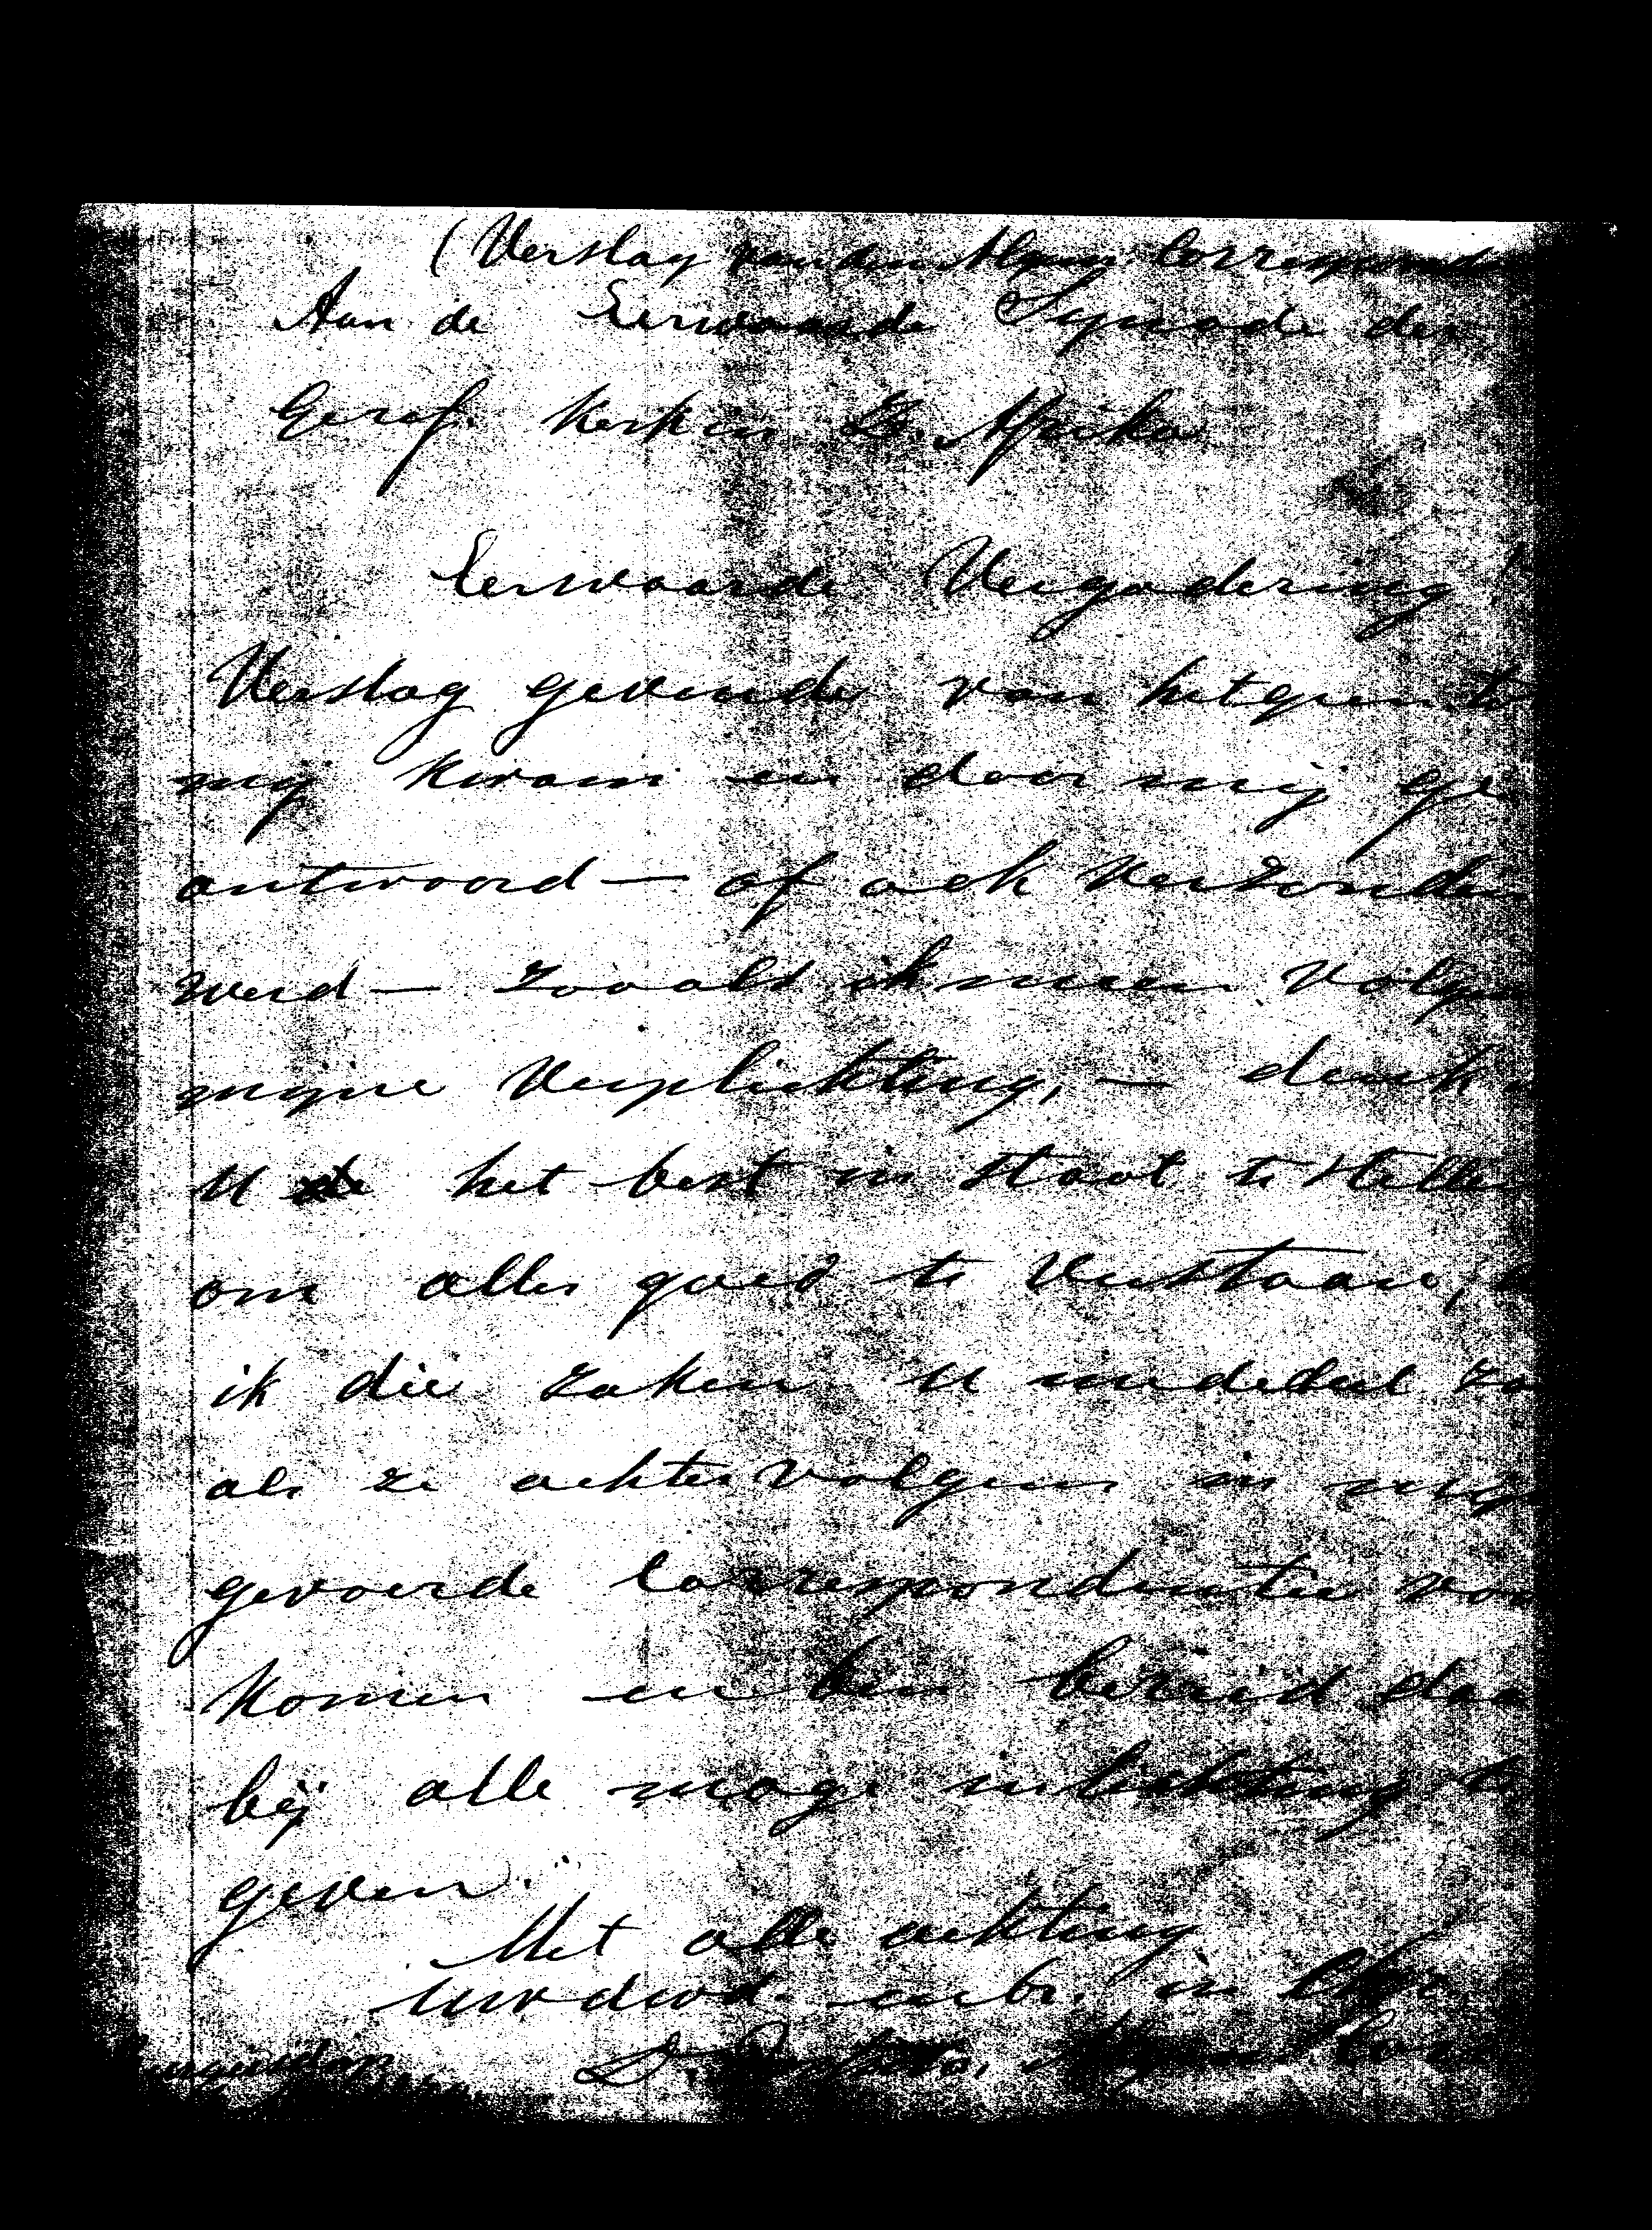 (Verslag van den Algem. Correspond
Aan de Eerwaarde Synode der
Geref. Kerk in Z. Afrika
Eerwaarde Vergadering!
Verslag gevende van hetgeen t
mij kwam en door mij ge
antwoord — of ook verzonden
werd — zooals ik meen volgen
mijne verplichting, — denk
U het best in staat te stellen
om alles goed te verstaan,
ik die zaken U mededeel zo
als ze achtervolgens in mijn
gevoerde Correspondentie voor
komen en ben bereid daar
bij alle moge inlichting te
geven.
Met alle achting
Uw dwd. en br. in
D. Postma, Algem. Cor